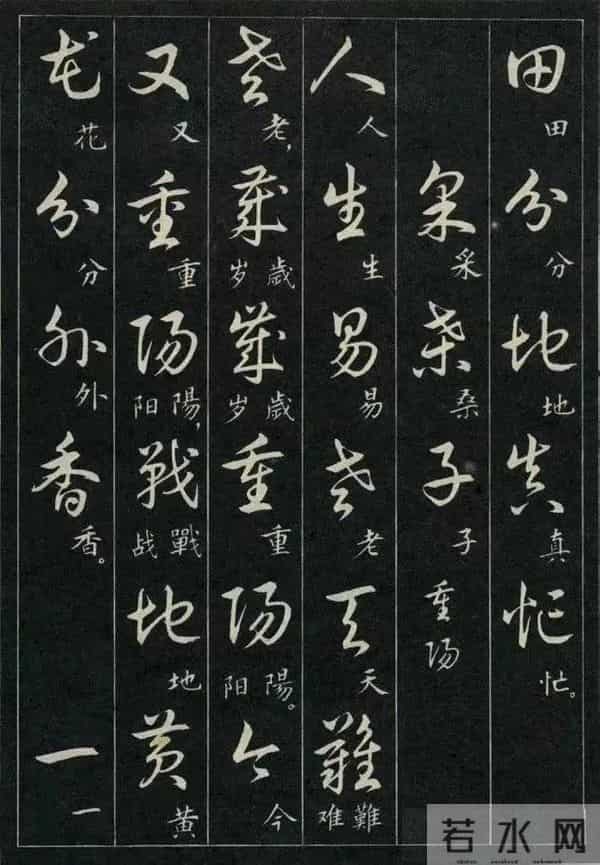 田分地真忙
田分地真忙。
采桑子
采桑子
重陽
人生易老天難
人生易老天難难
老歲歲重陽今
老,歲岁歲岁重陽阳。今
又重陽戰地黄
又重陽阳,戰战地黄
花分外香一
花分外香。一
若水网